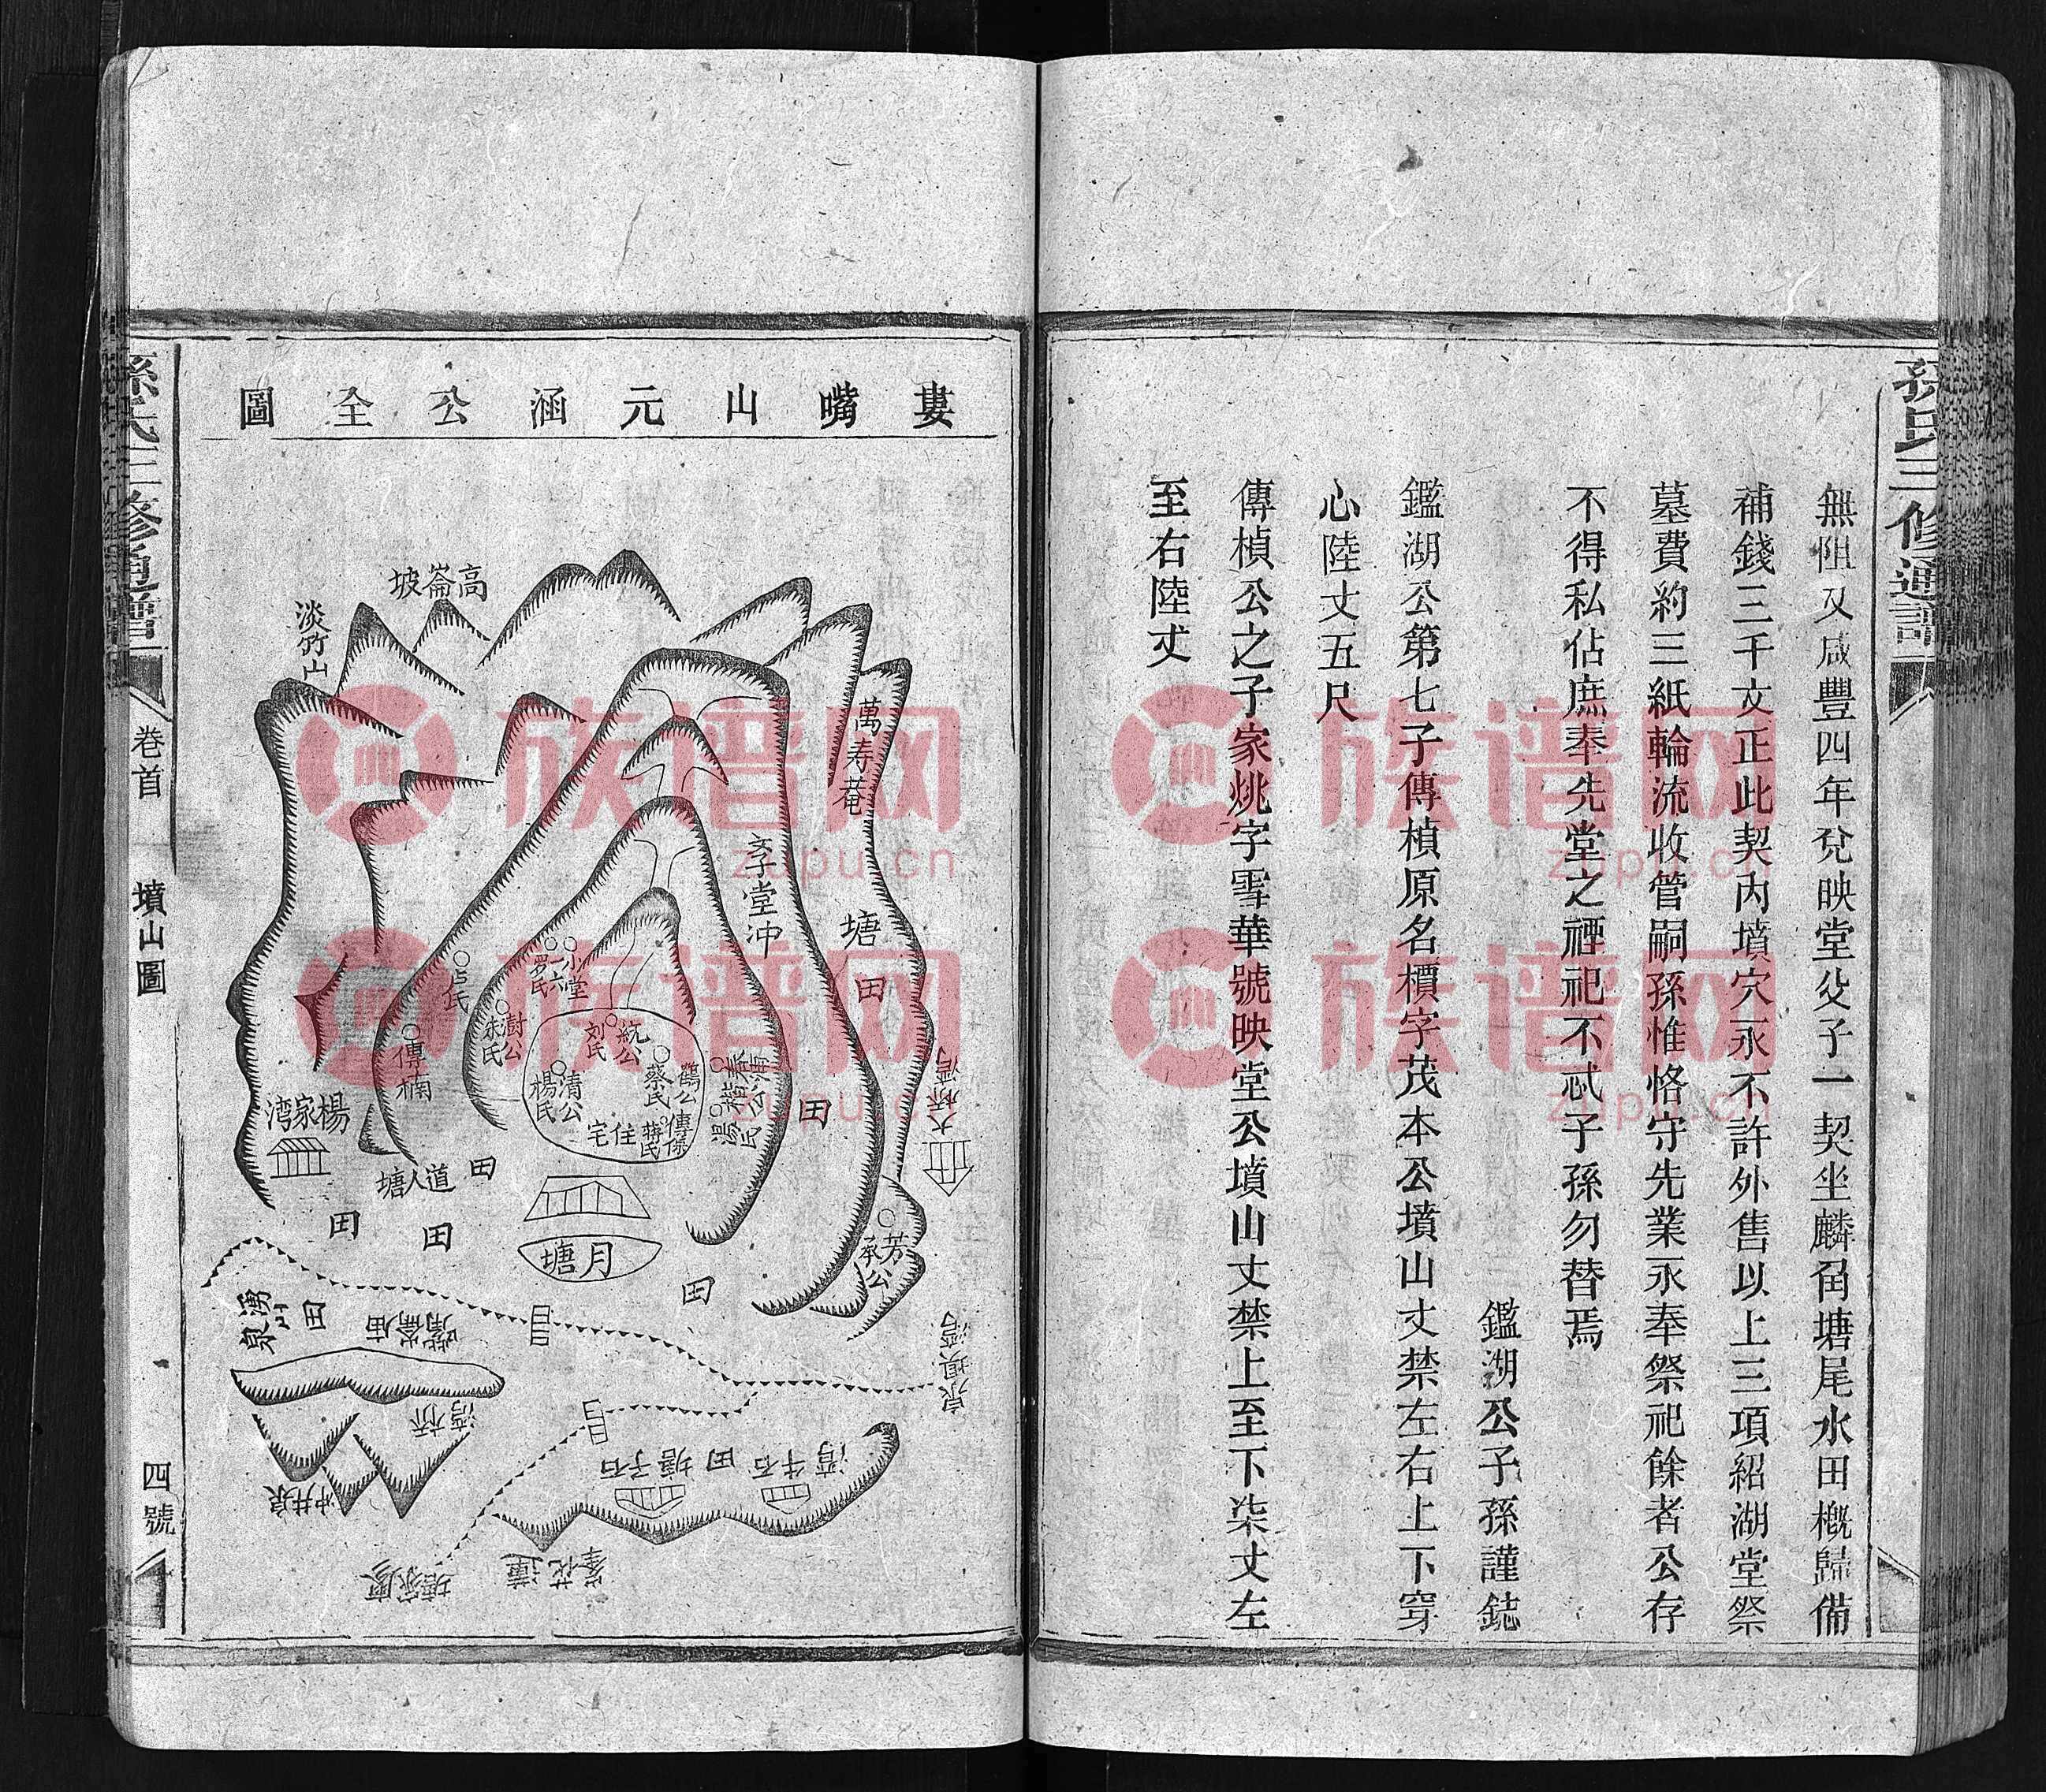 孫氏三修通譜
無阻又咸豐四年兌映堂父子一契坐麟角塘尾水田概歸備
補錢三千文正此契內墳穴永不許外售以上三項紹湖堂祭
墓費約三紙輪流收管嗣孫惟恪守先業永奉祭祀餘者公存
不得私佔庶奉先堂之禋祀不忒子孫勿替焉
鑑湖公子孫謹鋕
鑑湖公第七子傳楨原名槚字茂本公墳山丈禁左右上下穿
心陸丈五尺
傳楨公之子家烑字雪華號映堂公墳山丈禁上至下柒丈左
至右陸丈
婁嘴山元涵公全圖
高崙坡
淡竹山
萬寿菴
李堂冲
塘
田
小堂
一六
罗氏
占氏
澍公
朱氏
傳楠
統公
刘氏
鶴公
蔡氏
清公
楊氏
傳傑
蔣氏
住宅
楊家湾
道人塘
田
田
田
田
田
月塘
芳公
蔡公
大屋湾
湧泉
田
湾
石牛湾
田
石子塘
蓮花峯
廖家塘
泉井冲
孫氏三修通譜
卷首
墳山圖
四號
族谱网
zupu.cn
族谱网
zupu.cn
族谱网
zupu.cn
族谱网
zupu.cn